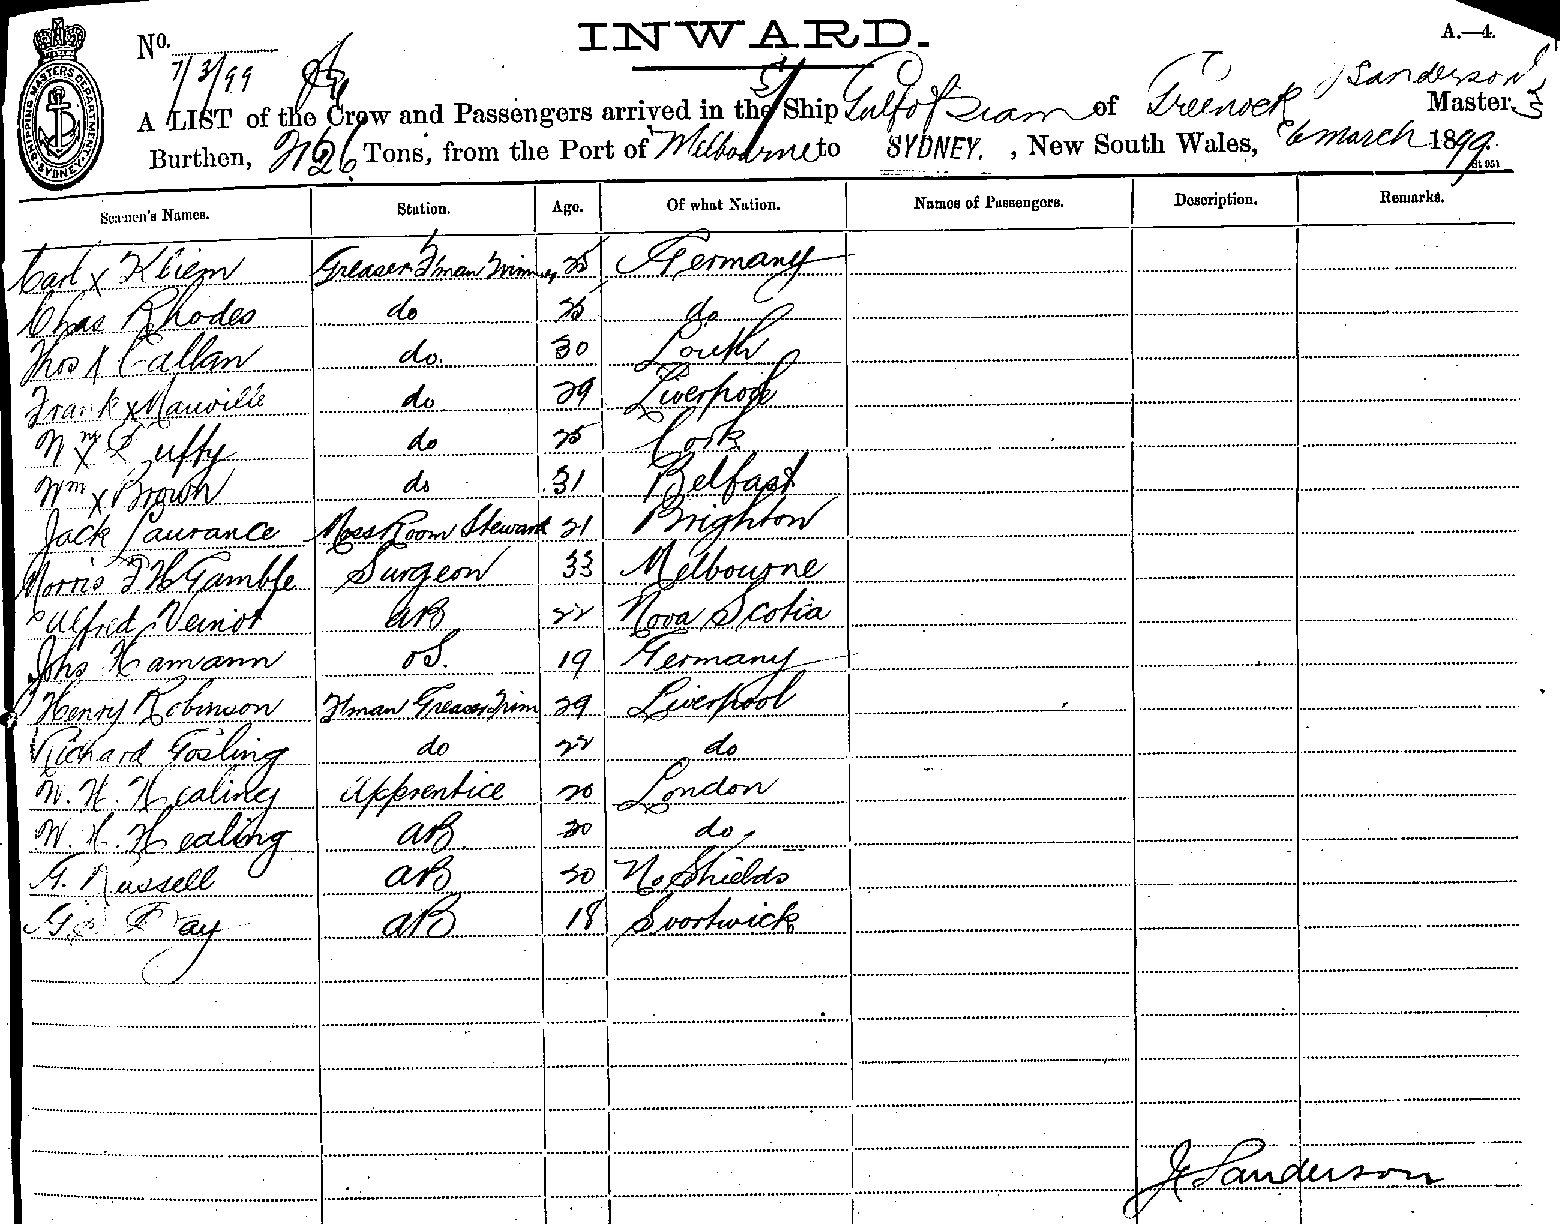 INWARD. A.—4.
No.
7/3/99
A LIST of the Crew and Passengers arrived in the S/ Ship Gulf of Siam of Greenock J Sanderson Master,
Burthen, Tons, from the Port of Melbourne to SYDNEY. , New South Wales, 6 March 1899
SHIPPING MASTERS DEPARTMENT SYDNEY
Seamen's Names. Station. Age. Of what Nation. Names of Passengers. Description. Remarks.
Carl x Kliem Greaser F'man Trimmer 25 Germany
Chas Rhodes do 25 do
Thos x Callan do. 30 Louth
Frank x Manville do 29 Liverpool
Wm x Duffy do 25 Cork
Wm x Brown do 31 Belfast
Jack Laurance Mess Room Steward 21 Brighton
Morris F H Gamble Surgeon 33 Melbourne
Alfred Veinot AB 22 Nova Scotia
Johs Hamann OS. 19 Germany
Henry Robinson F'man Greaser Trim 29 Liverpool
Richard Gosling do 22 do
W. H. Healing Apprentice 20 London
W. H. Healing AB 20 do
G. Russell AB 20 No Shields
Day AB 18
J Sanderson